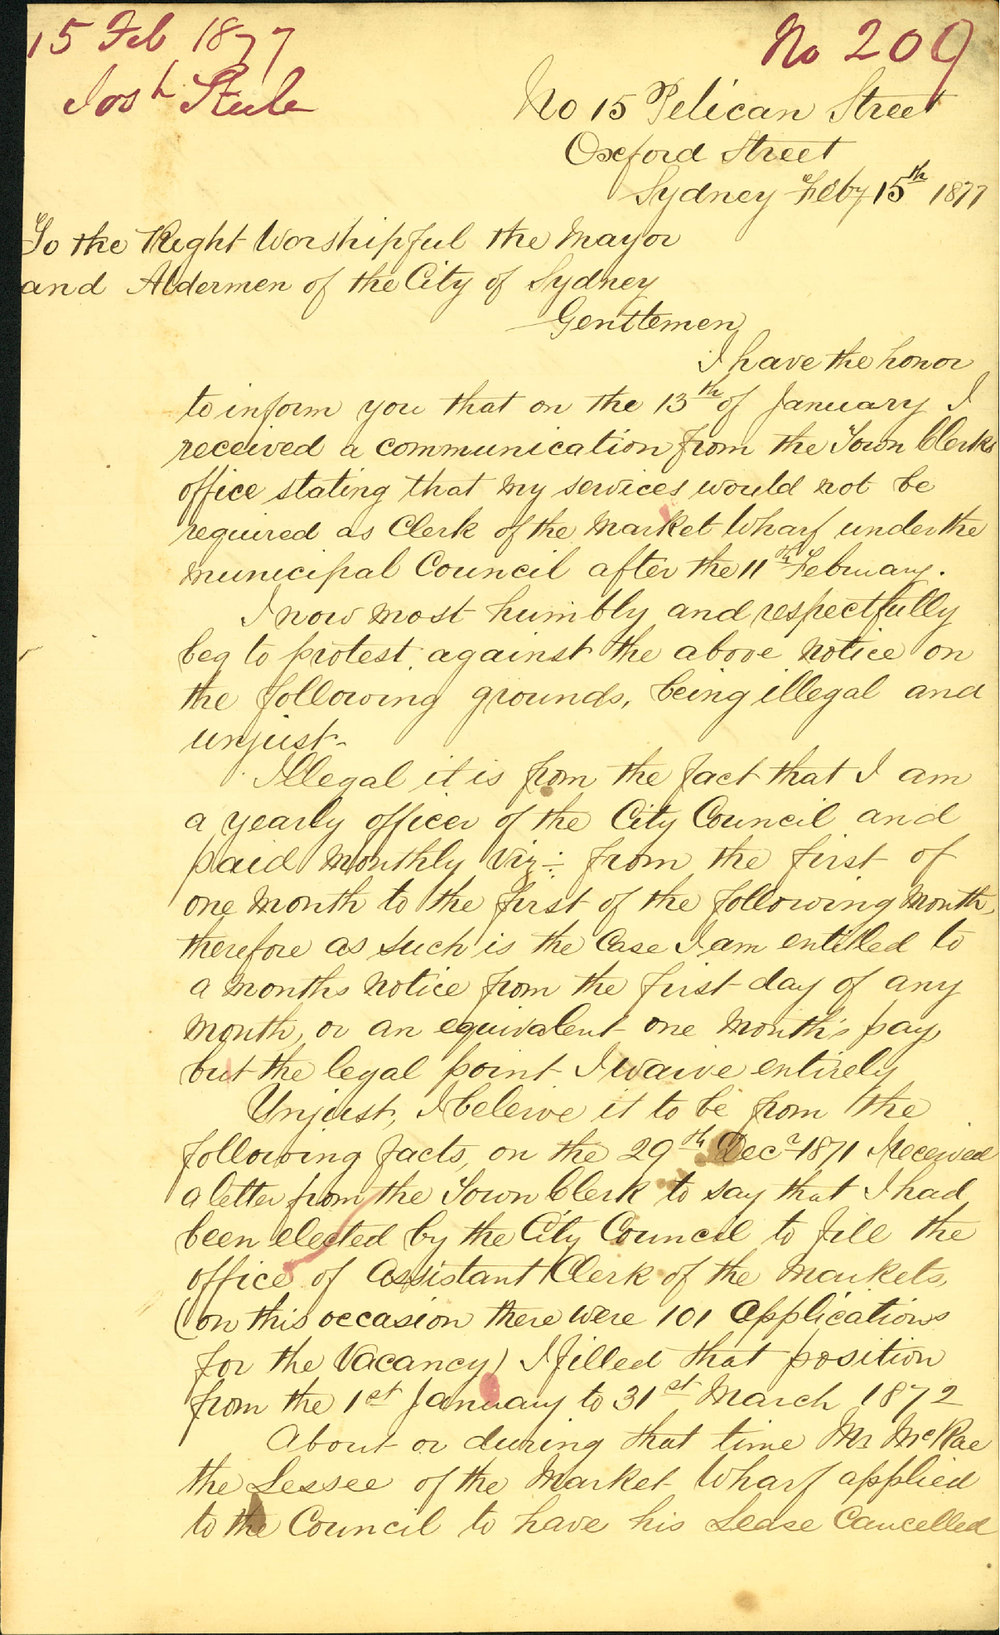 15 Feb 1877
No 209
Josh Steele
No 15 Pelican Street
Oxford Street
Sydney Feby 15th 1877
To the Right Worshipful the Mayor
and Aldermen of the City of Sydney
Gentlemen
I have the honor
to inform you that on the 13th of January I
received a communication from the Town Clerks
office stating that my services would not be
required as Clerk of the Market Wharf under the
Municipal Council after the 11th February.
I now most humbly and respectfully
beg to protest against the above notice on
the following grounds, being illegal and
unjust-
Illegal it is from the fact that I am
a yearly officer of the City Council and
paid Monthly Viz÷ from the first of
one Month to the first of the following Month,
therefore as such is the Case I am entitled to
a Months Notice from the first day of any
Month, or an equivalent one Month's pay
but the legal point I waive entirely
Unjust, I beleive it to be from the
following facts, on the 29th Decr 1871 I received
a letter from the Town Clerk to say that I had
been elected by the City Council to fill the
office of Assistant Clerk of the Markets,
(on this occasion there were 101 Applications
for the Vacancy) I filled that position
from the 1st January to 31st March 1872
About or during that time Mr McRae
the Lessee of the Market Wharf applied
to the Council to have his Lease Cancelled